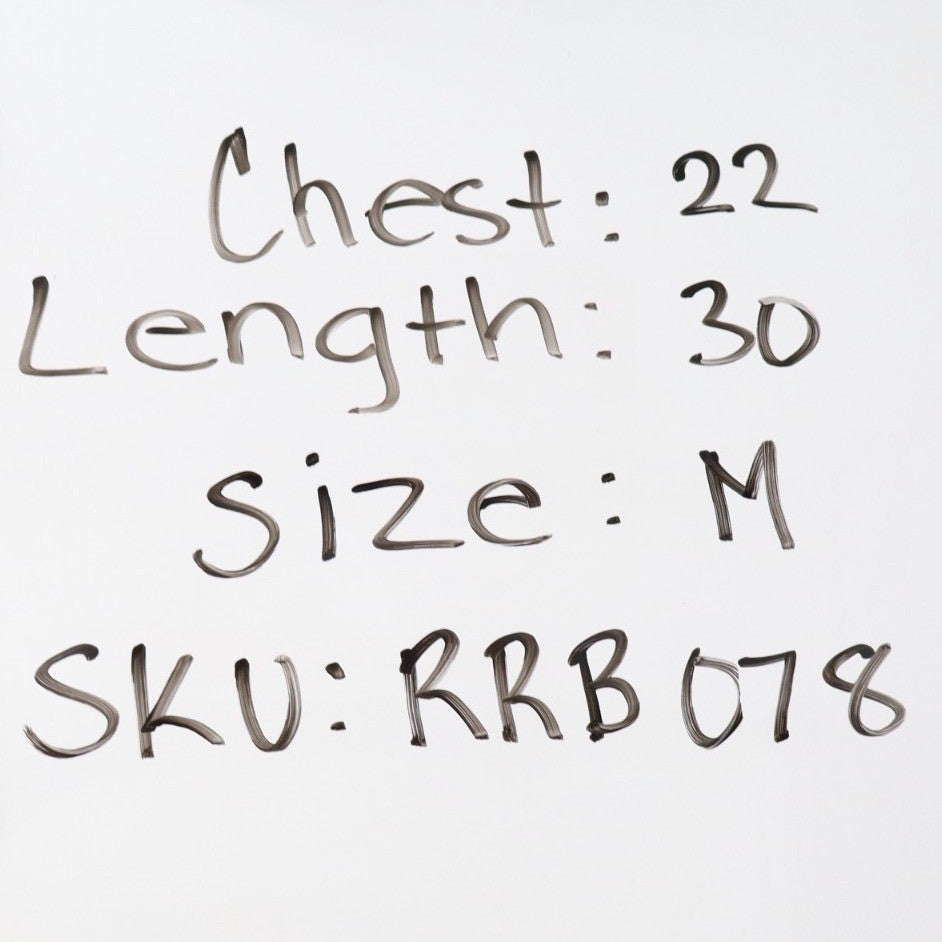 Chest: 22
Length: 30
Size: M
SKU: RRB078